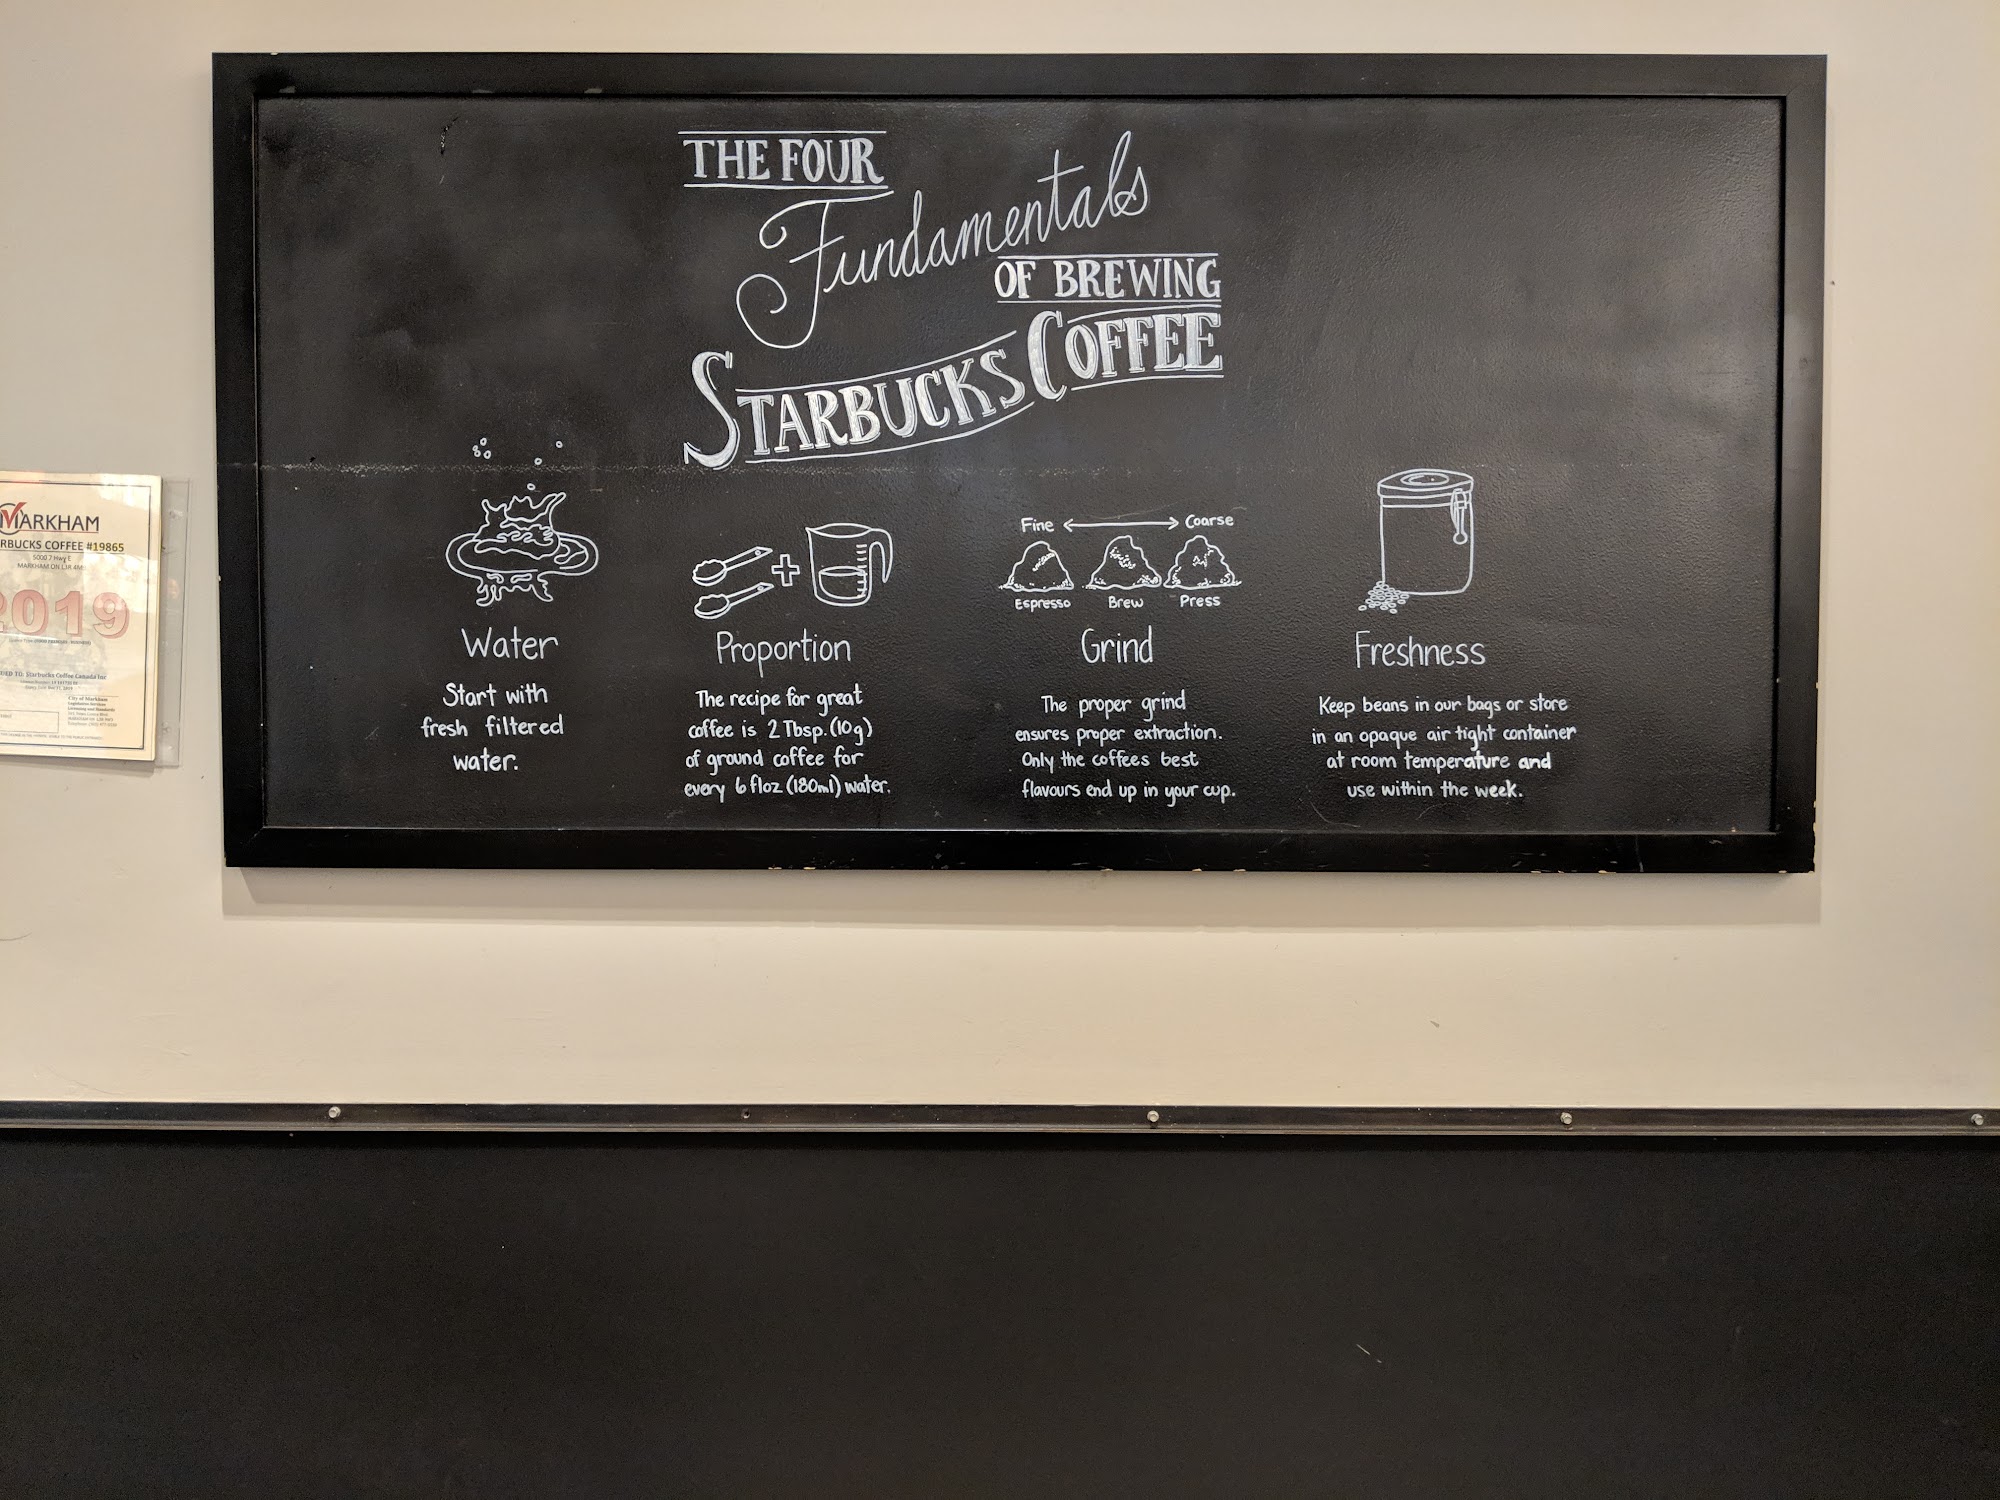 THE FOUR
Fundamentals
OF BREWING
STARBUCKS COFFEE
Water
Start with
fresh filtered
water.
Proportion
The recipe for great
coffee is 2 Tbsp. (10g)
of ground coffee for
every 6 floz (180ml) water.
Fine Coarse
Espresso Brew Press
Grind
The proper grind
ensures proper extraction.
Only the coffees best
flavours end up in your cup.
Freshness
Keep beans in our bags or store
in an opaque air tight container
at room temperature and
use within the week.
MARKHAM
RBUCKS COFFEE #19865
5000 7 Hwy E
MARKHAM ON L3R 4M
2019
IED TO: Starbucks Coffee Canada Inc
City of Markham